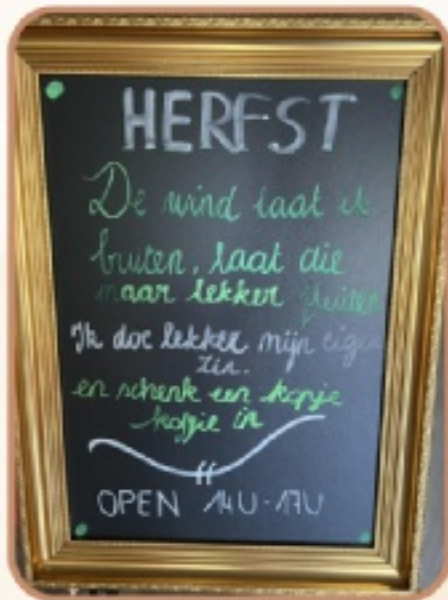 HERFST
De wind laat ik
buiten, laat die
maar lekker fluiten
Ik doe lekker mijn eigen
zin.
en schenk een kopje
koffie in
OPEN 14U-17U